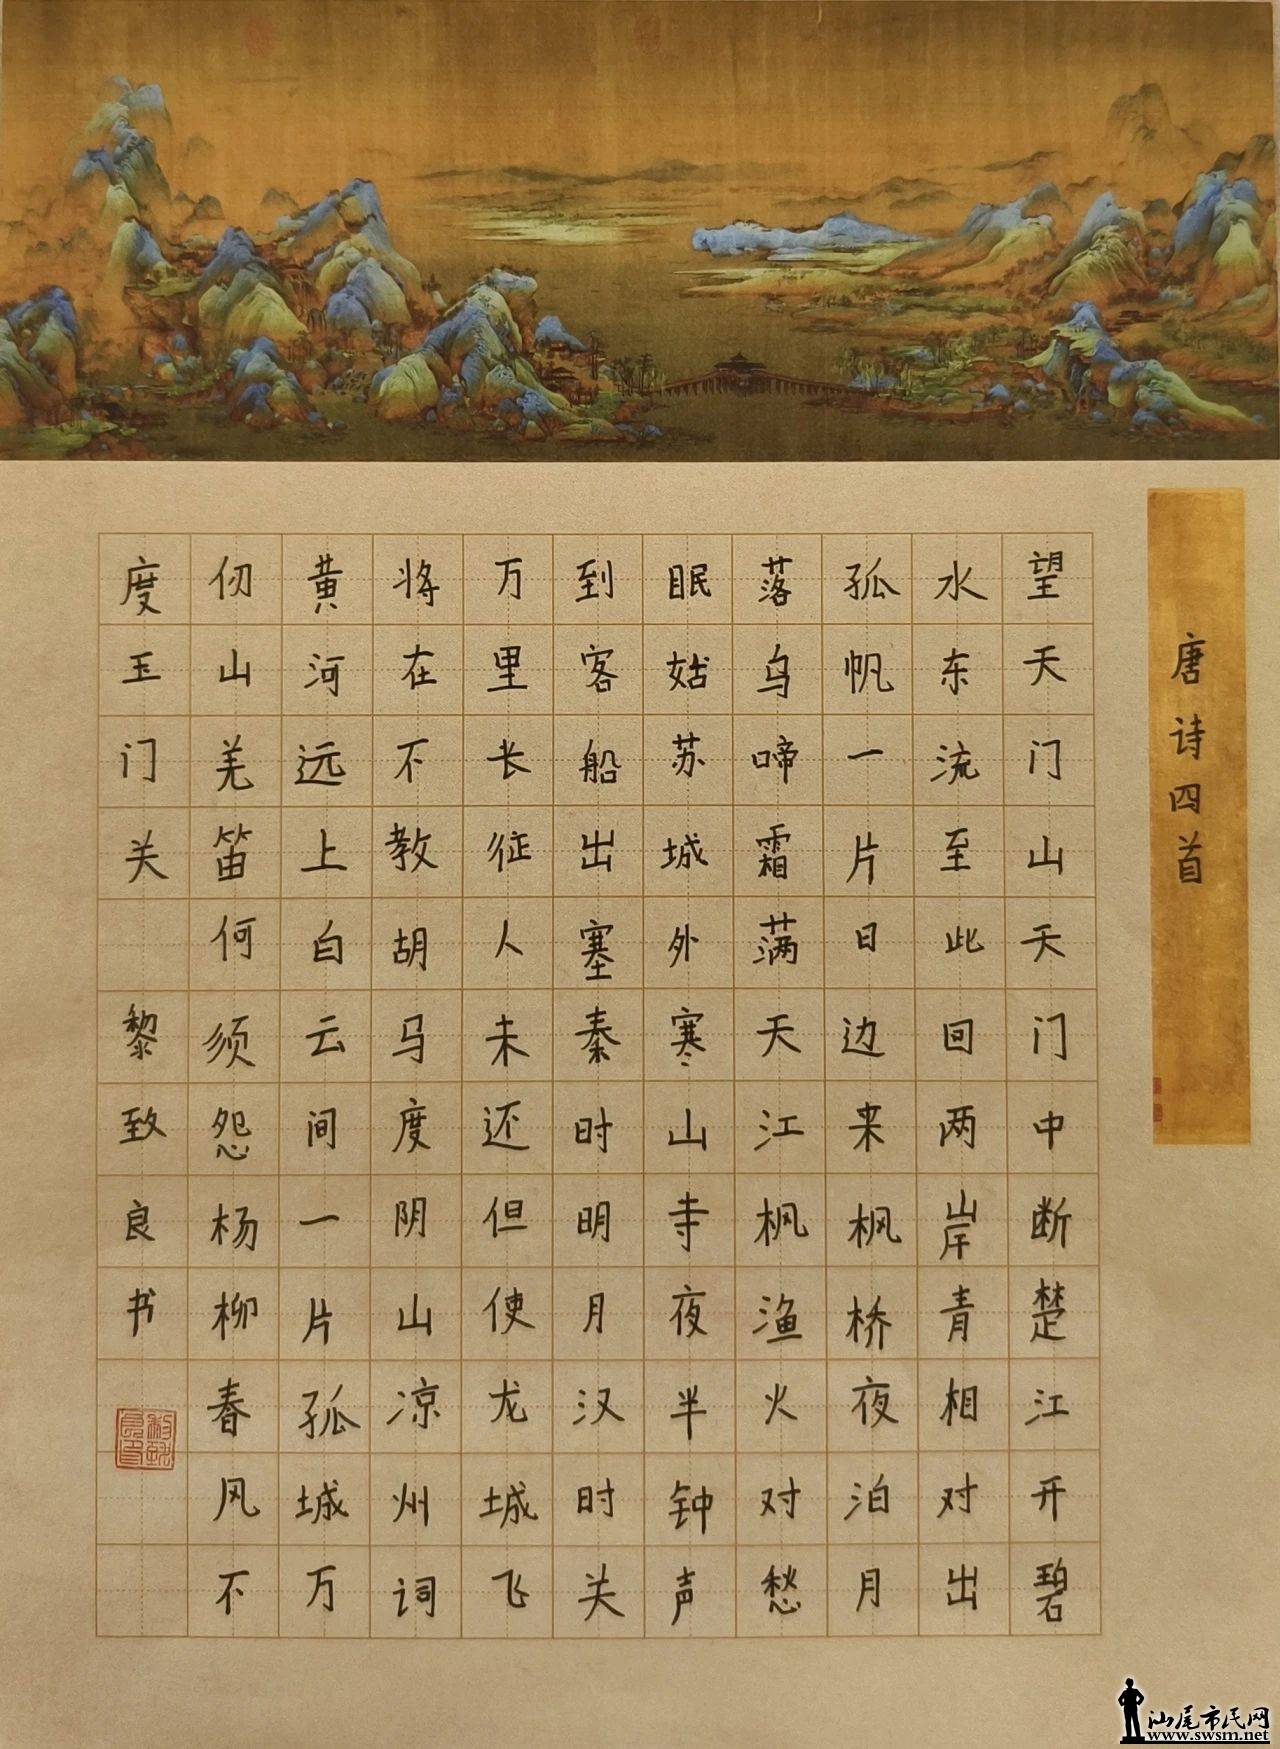 唐诗四首
望天门山天门中断楚江开碧
水东流至此回两岸青相对出
孤帆一片日边来枫桥夜泊月
落乌啼霜满天江枫渔火对愁
眠姑苏城外寒山寺夜半钟声
到客船出塞秦时明月汉时关
万里长征人未还但使龙城飞
将在不教胡马度阴山凉州词
黄河远上白云间一片孤城万
仞山羌笛何须怨杨柳春风不
度玉门关 黎致良书
黎致良印
汕尾市民网
www.swsm.net